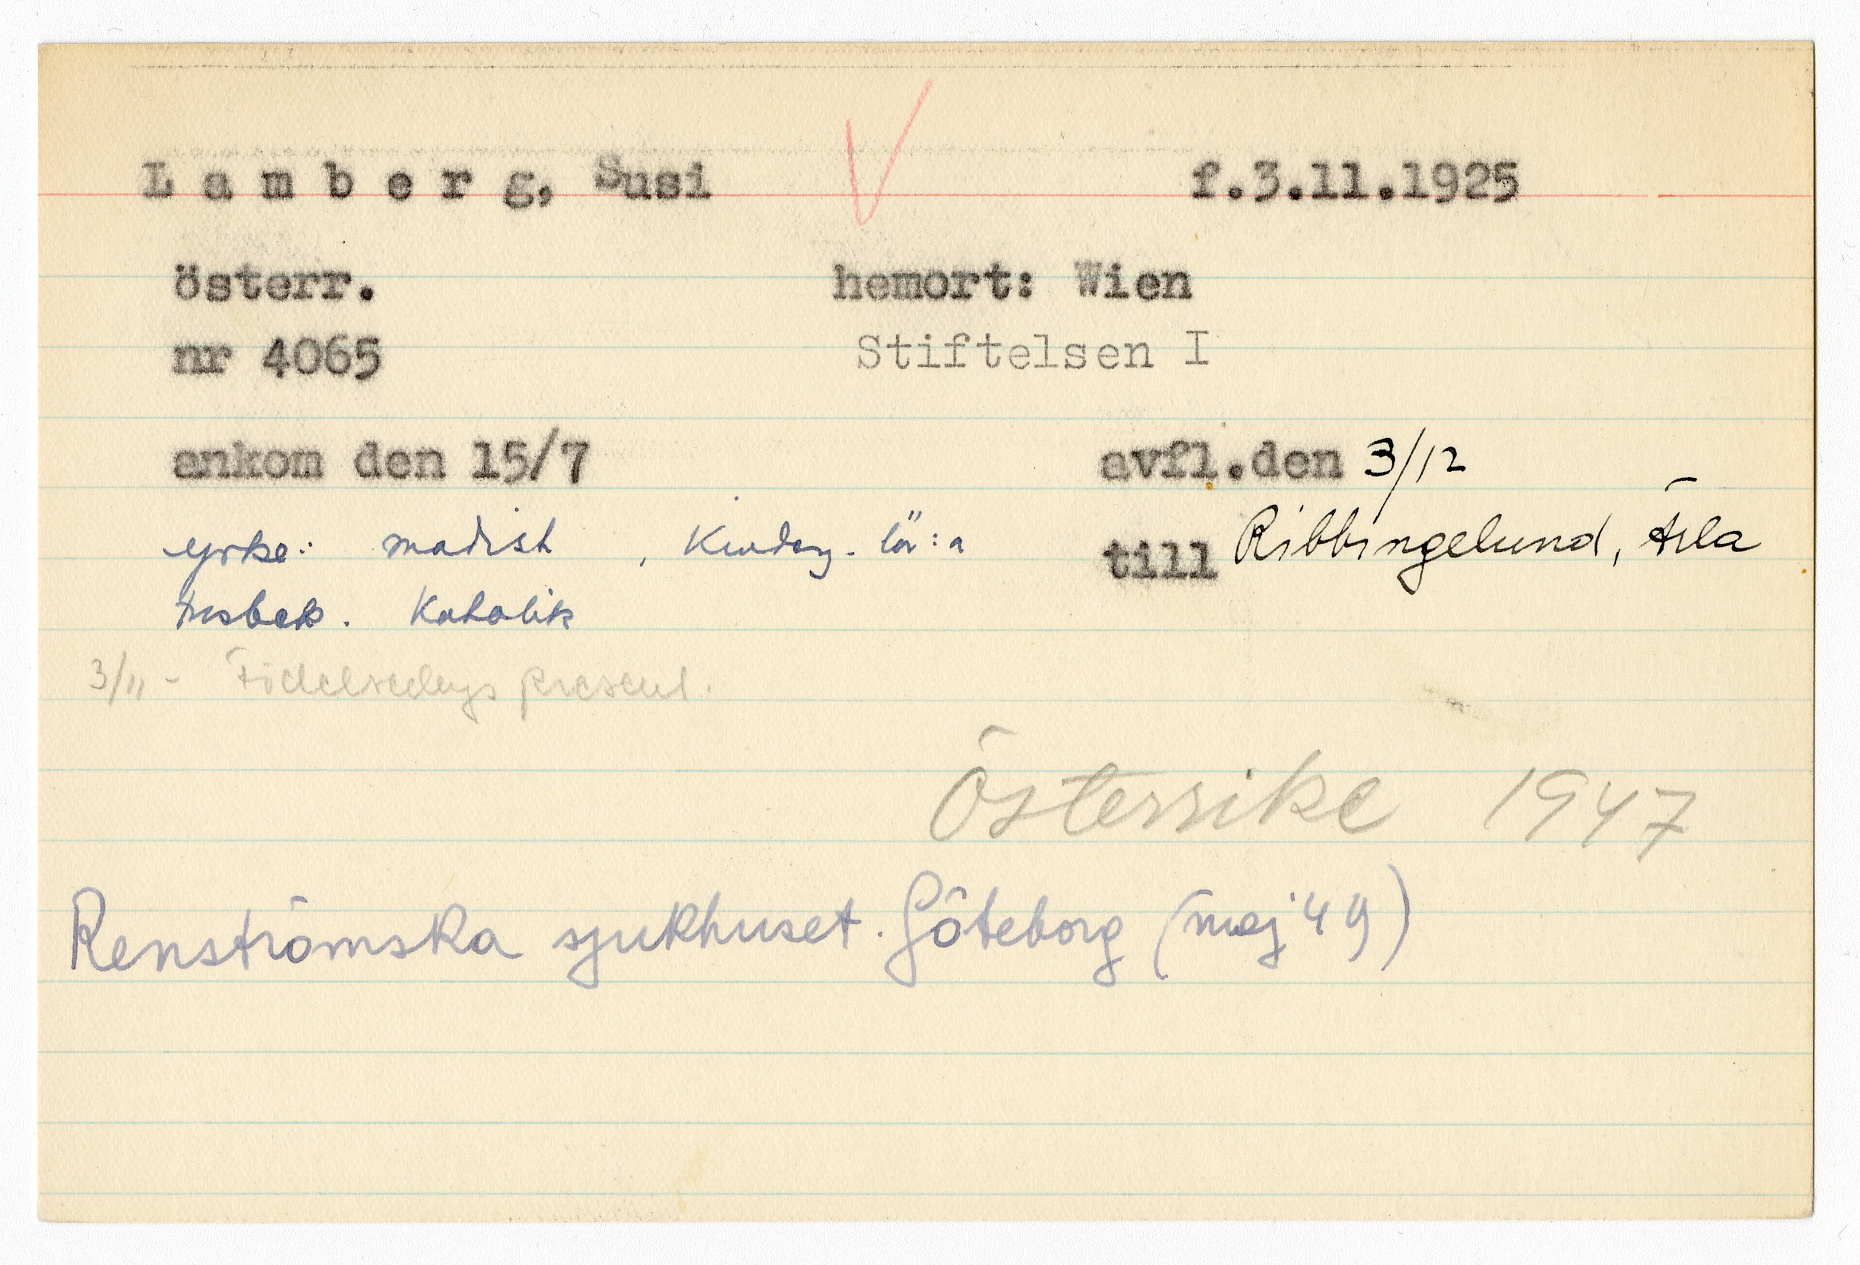 Lamberg, Susi f.3.11.1925
österr. hemort: Wien
nr 4065 Stiftelsen I
ankom den 15/7 avfl.den 3/12
yrke: modist, Kinderg. lär:a till Ribbingelund, Ärla
trosbek. Katolik
3/11 - Födelsedags present.
Österrike 1947
Renströmska sjukhuset. Göteborg (maj '49)